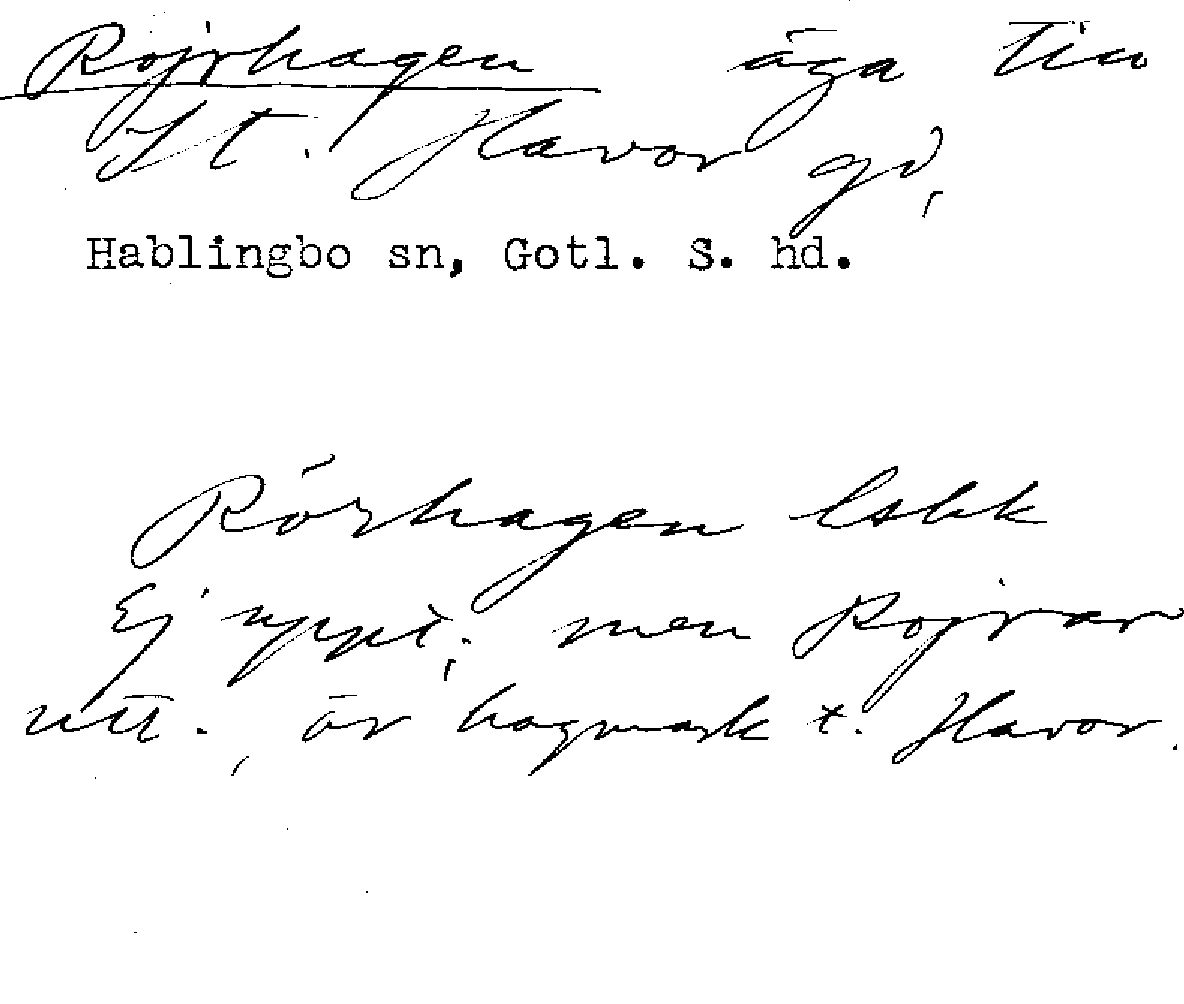 Rojrhagen äga till
St. Havor gd,
Hablingbo sn, Gotl. S. hd.
Rörhagen lskk
Ej uppt; men Rojrar
utt., är hagmark t. Havor.